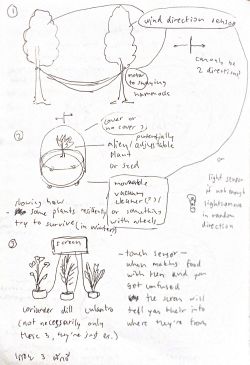 ①
wind direction sensor
can only be
2 directions
motor
to swinging
hammock
②
cover or
no cover ?
potentially
alien/adjustable
plant
or seed
moveable
vacuum
cleaner(?)/
or something
with wheels
or
light sensor
if not enough
light
in random
direction
showing how
- some plants
try to survive (in winter)
③
screen
coriander dill culantro
(not necessarily only
these 3, they're just ex.)
- touch sensor -
when making food
with them and you
get confused
the screen will
tell you their info
where they're from